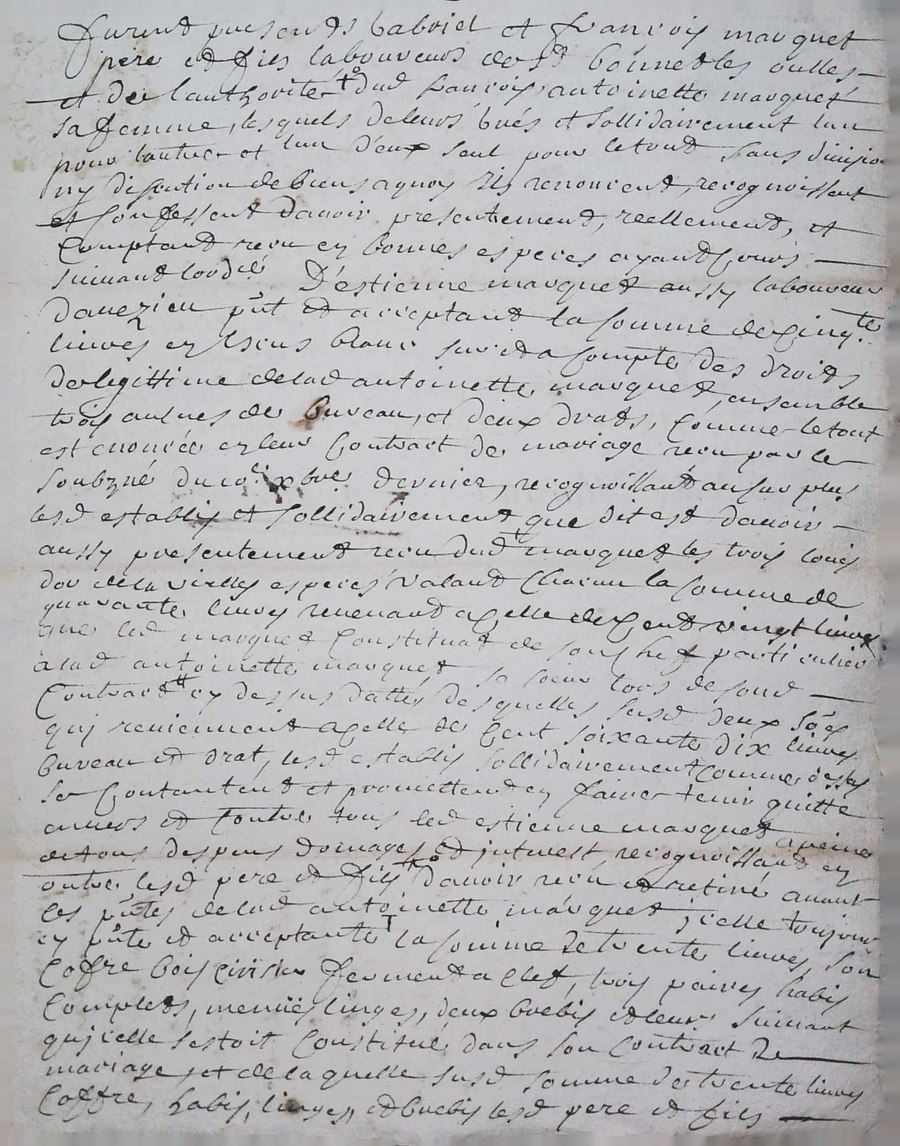 furent presents Gabriel et françois marquet
pere et fils laboureurs de st bonnet les oulles
et de l'authorité dud françois, antoinette marquet
sa femme, lesquels de leurs grés et sollidairement l'un
pour l'autre et l'un d'eux seul pour le tout sans division
ny discution de biens a quoy ils renoncent recognoissent
et Confessent d'avoir presentement, reellement, et
Comptant receu en bonnes especes ayant Cours
suivant l'ordre D'estienne marquet aussy laboureur
daveizieu pnt et acceptant la somme de Cinqte
livres en sur et a Compte des droits
de legittime de lad antoinette marquet, ensemble
trois aulnes de bureau, et deux drats, Comme le tout
est enoncée en leur Contract de mariage receu par le
soubzné du xbre dernier, recognoissant au sur plus
lesd establis et sollidairement que dit est d'avoir
aussy presentement receu dud marquet les trois louis
d'or de la vielles especes valant Chacun la somme de
quarante livres revenant a Celle de Cent vingt livres
que led marquet Constituat de son Chef particulier
a lad antoinette marquet sa soeur lors de sond
Contract cy dessus datté desquelles susd deux soes
qui reviennent a Celle de Cent soixante dix livres
bureau et drat, lesd establis sollidairement Comme dessus
se Contantent et promettent en faire tenir quitte
envers et Contre tous led estienne marquet a peine
de tous despens domages et interest, recognoissant en
outre lesd pere et fils d'avoir receu et retiré avant
les pntes de lad antoinette marquet icelle toujours
cy pnte et acceptante la somme de trente livres, son
Coffre bois fermant a Clef, trois paires habis
Complets, menües linges, deux brebis et leurs suivant
qu'icelle s'estoit Constitué dans son Contract de
mariage, et de laquelle susd somme de trente livres
Coffre, habis, linges, et brebis lesd pere et fils